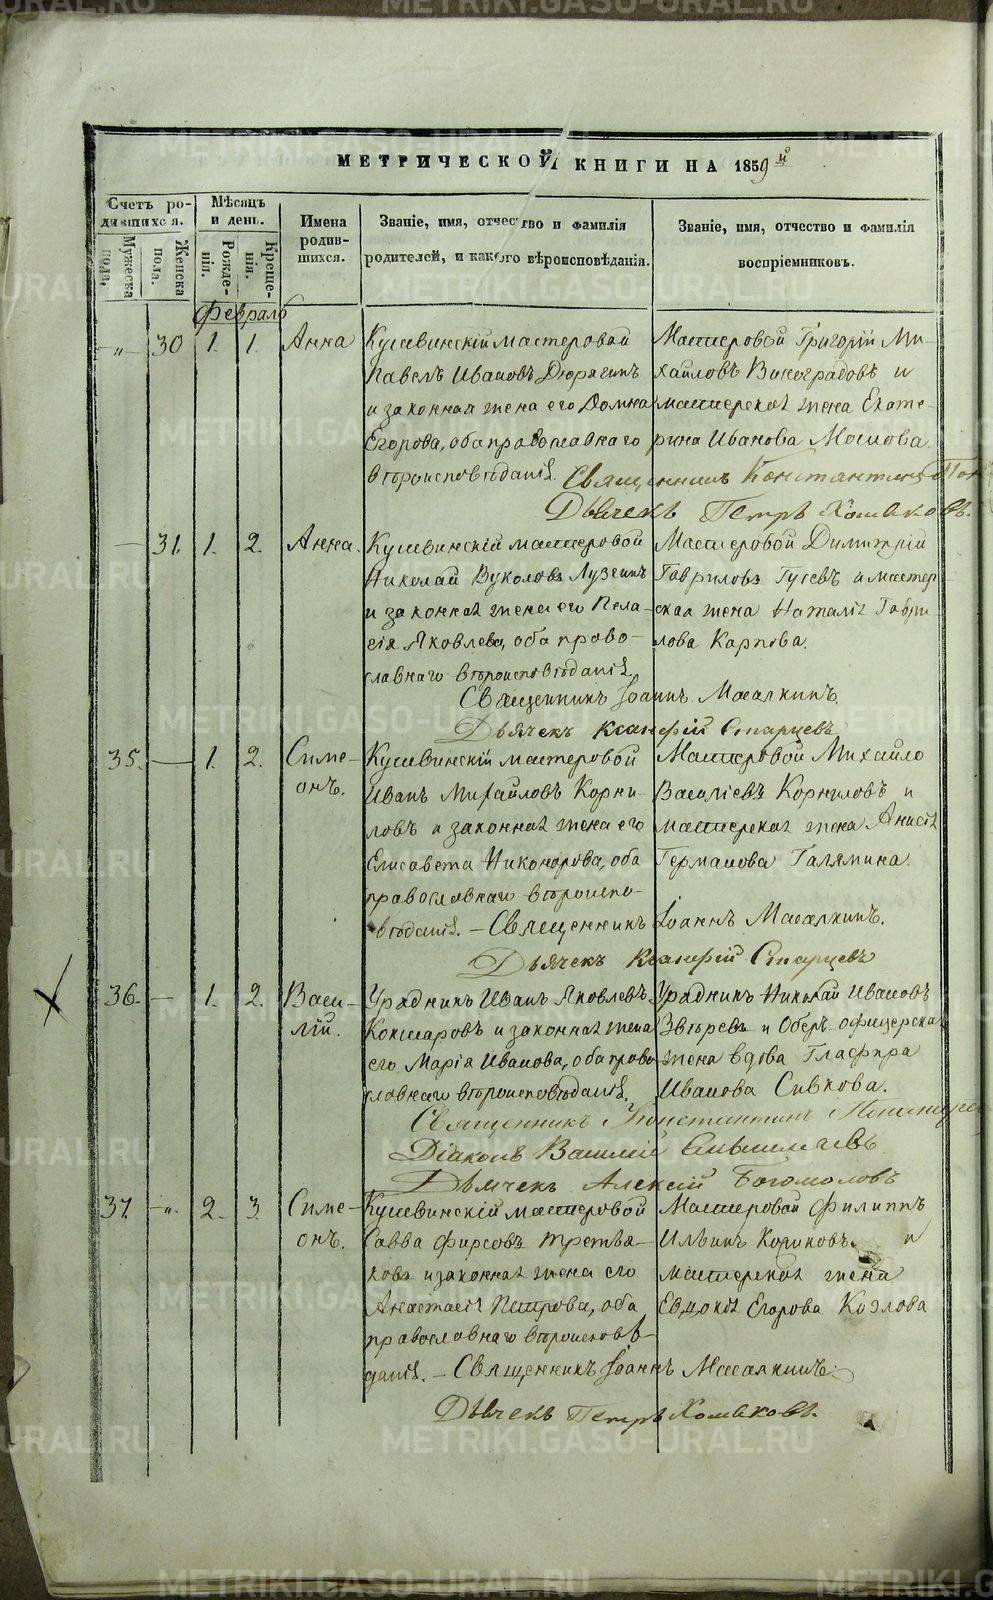 МЕТРИЧЕСКОЙ КНИГИ НА 1859й
Счетъ родившихся.
Мужеска пола,
Женска пола.
Мѣсяцъ и день.
Рожденія.
Крещенія.
Имена родившихся.
Званіе, имя, отчество и фамилія родителей, и какого вѣроисповѣданія.
Званіе, имя, отчество и фамилія воспріемниковъ.
Февраль
-„- 30 1. 1. Анна
Кушвинскій мастеровой
Павелъ Ивановъ Дюрягинъ
и законная жена его Домна
Егорова, оба православнаго
вѣроисповѣданія.
Мастеровой Григорій Ми-
хайловъ Виноградовъ и
мастерская жена Екате-
рина Иванова
Священникъ Константинъ
Дьячекъ Петръ Хомяковъ.
— 31. 1. 2. Анна.
Кушвинскій мастеровой
Николай Вуколовъ Лузинъ
и законная жена его Пела-
гія Яковлева, оба право-
славнаго вѣроисповѣданія
Мастеровой Димитрій
Гавриловъ Гусевъ и мастер-
ская жена Наталія Гаври-
лова Карпова.
Священникъ Іоаннъ Масалкинъ.
Дьячекъ Ксанфій Старцевъ
35. — 1. 2. Симе-
онъ.
Кушвинскій мастеровой
Иванъ Михайловъ Корни-
ловъ и законная жена его
Елисавета Никонорова, оба
православнаго вѣроиспо-
вѣданія.
Мастеровой Михайло
Василіевъ Корниловъ и
мастерская жена Анисія
Германова Галямина.
— Священникъ Іоаннъ Масалкинъ.
Дьячекъ Ксанфій Старцевъ
36. — 1. 2. Васи-
лій.
Урядникъ Иванъ Яковлевъ
Кокшаровъ и законная жена
его Марія Иванова, оба право-
славнаго вѣроисповѣданія.
Урядникъ Николай Ивановъ
Звѣревъ и Оберъ-офицерская
жена вдова Глафира
Иванова Сивкова.
Священникъ Константинъ
Діаконъ Василій
Дьячекъ Алексій Богомоловъ
37. -„- 2. 3. Симе-
онъ.
Кушвинскій мастеровой
Савва Фирсовъ Третья-
ковъ и законная жена его
Анастасія Петрова, оба
православнаго вѣроисповѣ-
данія.
Мастеровой Филиппъ
Ильинъ и
мастерская жена
Евдокія Егорова Козлова
— Священникъ Іоаннъ Масалкинъ.
Дьячекъ Петръ Хомяковъ.
METRIKI.GASO-URAL.RU